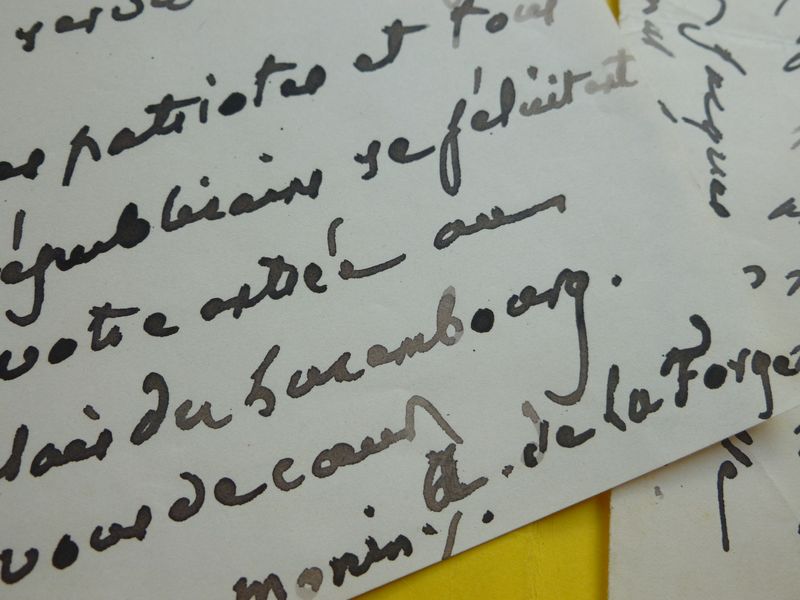 patriotes et tous
républicains se félicitent
votre entrée au
du Luxembourg.
vous de cœur
A. de La Forge
Jacques